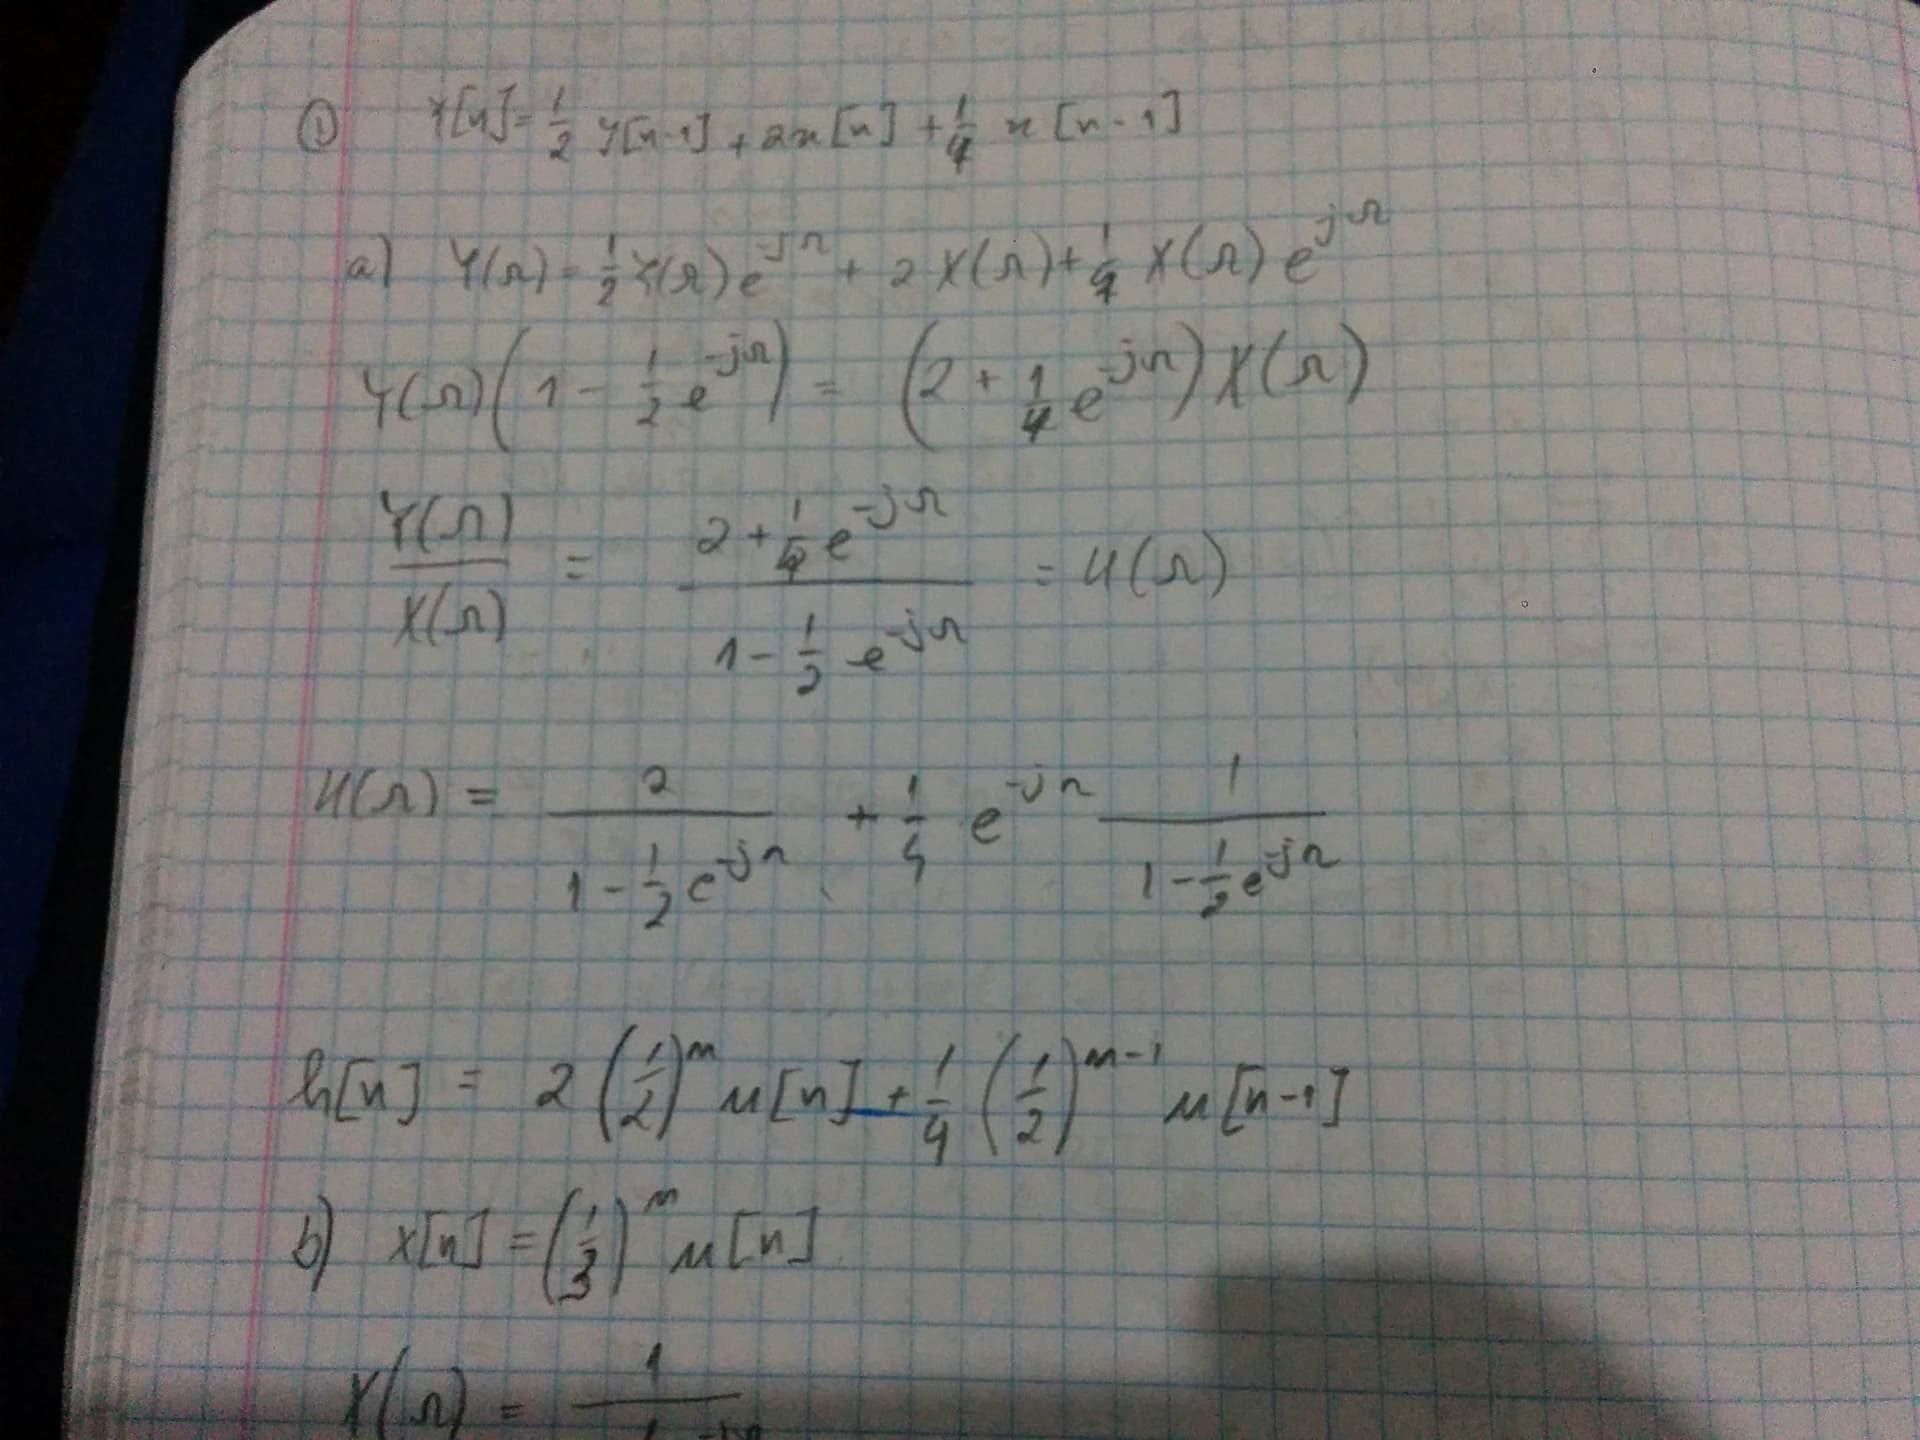 ① Y[n]=1/2 y[n-1]+2x[n]+1/4 x[n-1]
a) Y(Ω)=1/2 Y(Ω)e^{-jΩ}+2X(Ω)+1/4 X(Ω)e^{jΩ}
Y(Ω)(1-1/2 e^{-jΩ})=(2+1/4 e^{-jΩ})X(Ω)
Y(Ω)/X(Ω)=(2+1/4 e^{-jΩ})/(1-1/2 e^{-jΩ})=H(Ω)
H(Ω)=2/(1-1/2 e^{-jΩ})+1/4 e^{-jΩ} 1/(1-1/2 e^{-jΩ})
h[n]=2(1/2)^n u[n]+1/4(1/2)^{n-1} u[n-1]
b) x[n]=(1/3)^n u[n]
X(Ω)=1/